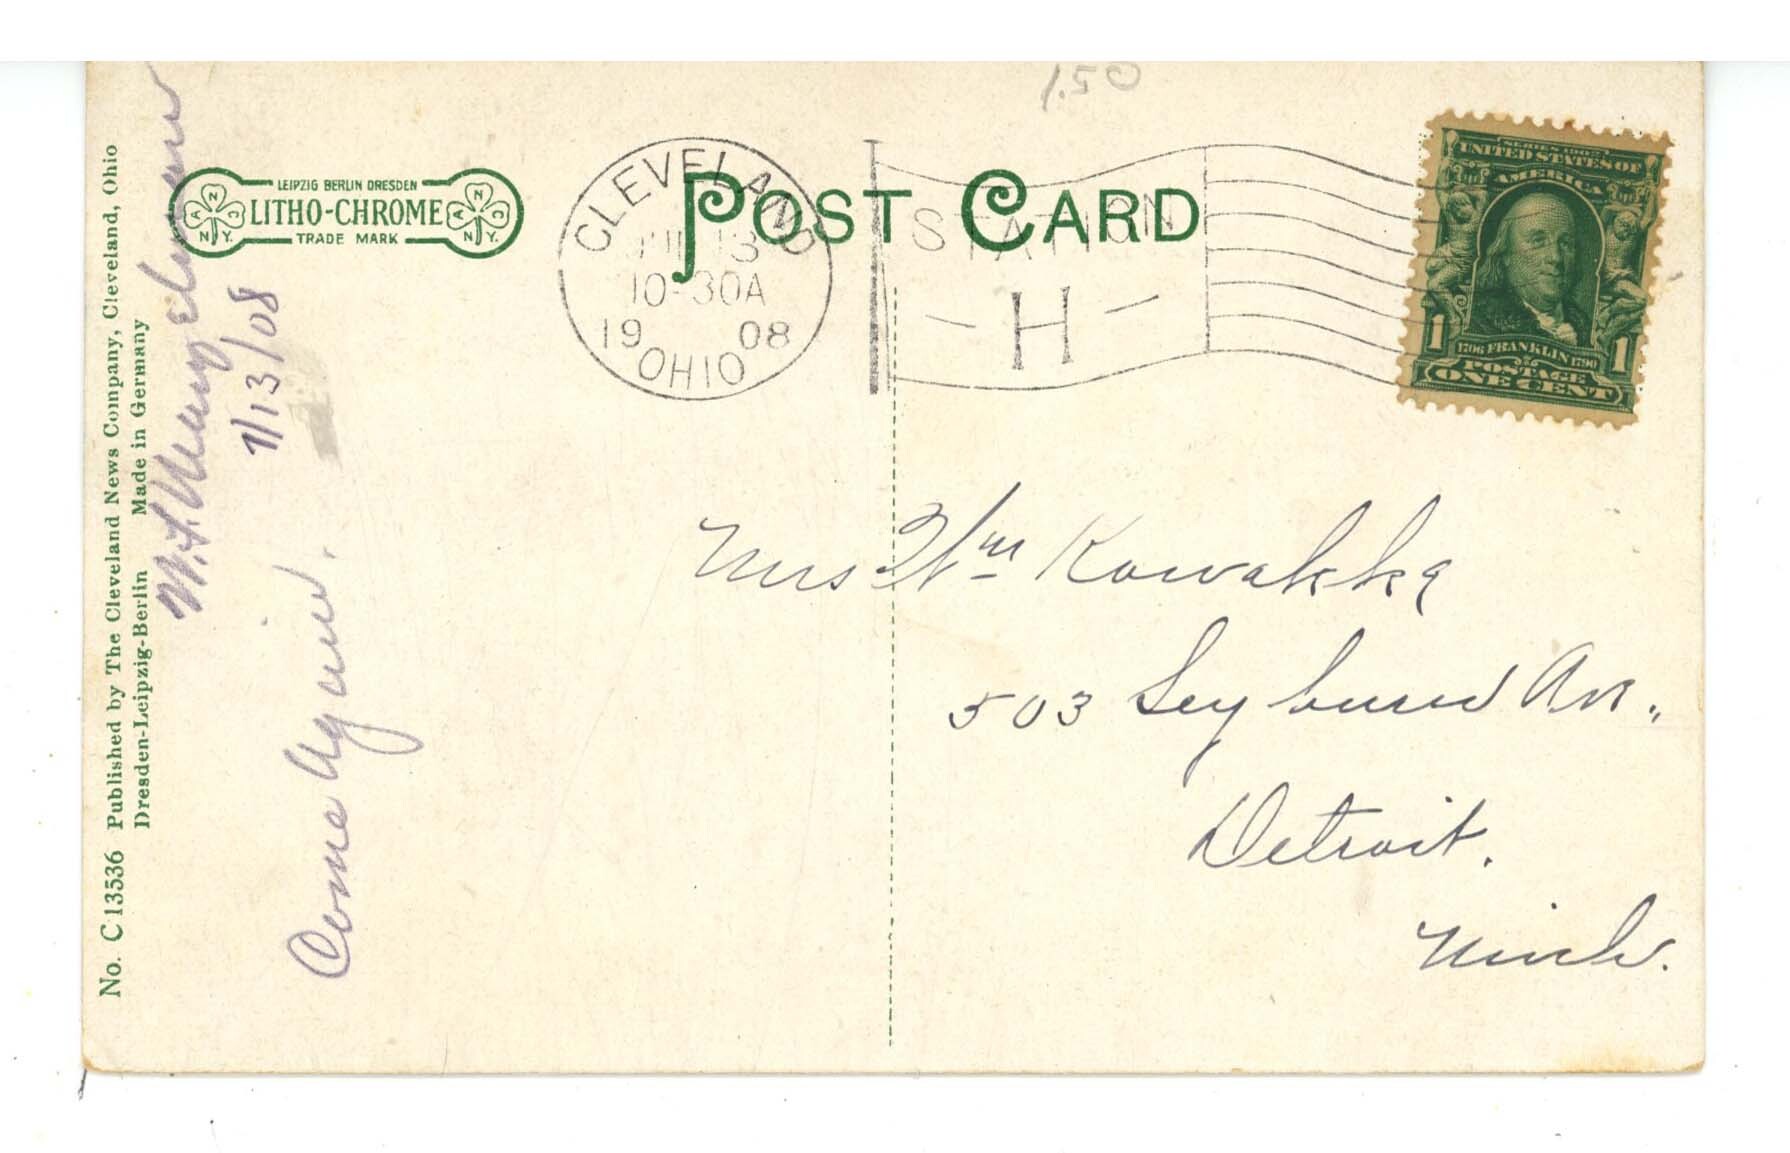 1.50
LEIPZIG BERLIN DRESDEN
LITHO-CHROME
TRADE MARK
A N C
N.Y.
A N C
N.Y.
POST CARD
CLEVELAND
JUL 13
10-30A
1908
OHIO
STATION
H
SERIES 1902
UNITED STATES OF
AMERICA
1 1
1706 FRANKLIN 1790
POSTAGE
ONE CENT
No. C 13536 Published by The Cleveland News Company, Cleveland, Ohio
Dresden-Leipzig-Berlin Made in Germany
7/13/08
Come Again.
Mrs Wm Kowalkka
503 Seyburn Av.,
Detroit.
Mich.